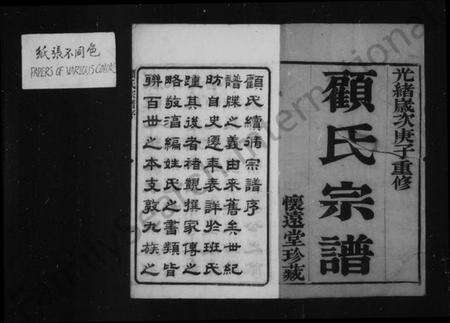 紙張不同色
PAPERS OF VARIOUS COLORS
光緒歲次庚子重修
顧氏宗譜
懷遠堂珍藏
顧氏續脩宗譜序
譜牒之義由來舊矣世紀
昉自史遷年表詳於班氏
踵其後者褚覬撰家傳之
略敬滈編姓氏之書類皆
聯百世之本支敦九族之